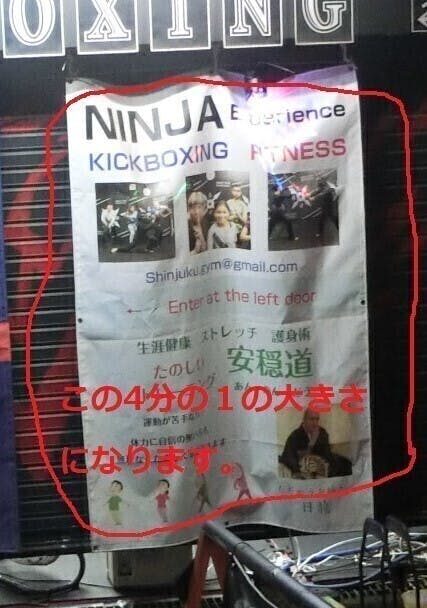 OXING
NINJA Experience
KICKBOXING FITNESS
Shinjuku.gym@gmail.com
← Enter at the left door
生涯健康 ストレッチ 護身術
たのしい
安穏道
この4分の1の大きさ
運動が苦手な
体力に自信の無い
になります。